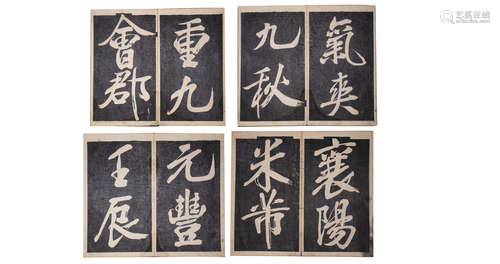 重九
會郡
氣爽
九秋
元豐
壬辰
襄陽
米芾
艺狐在线